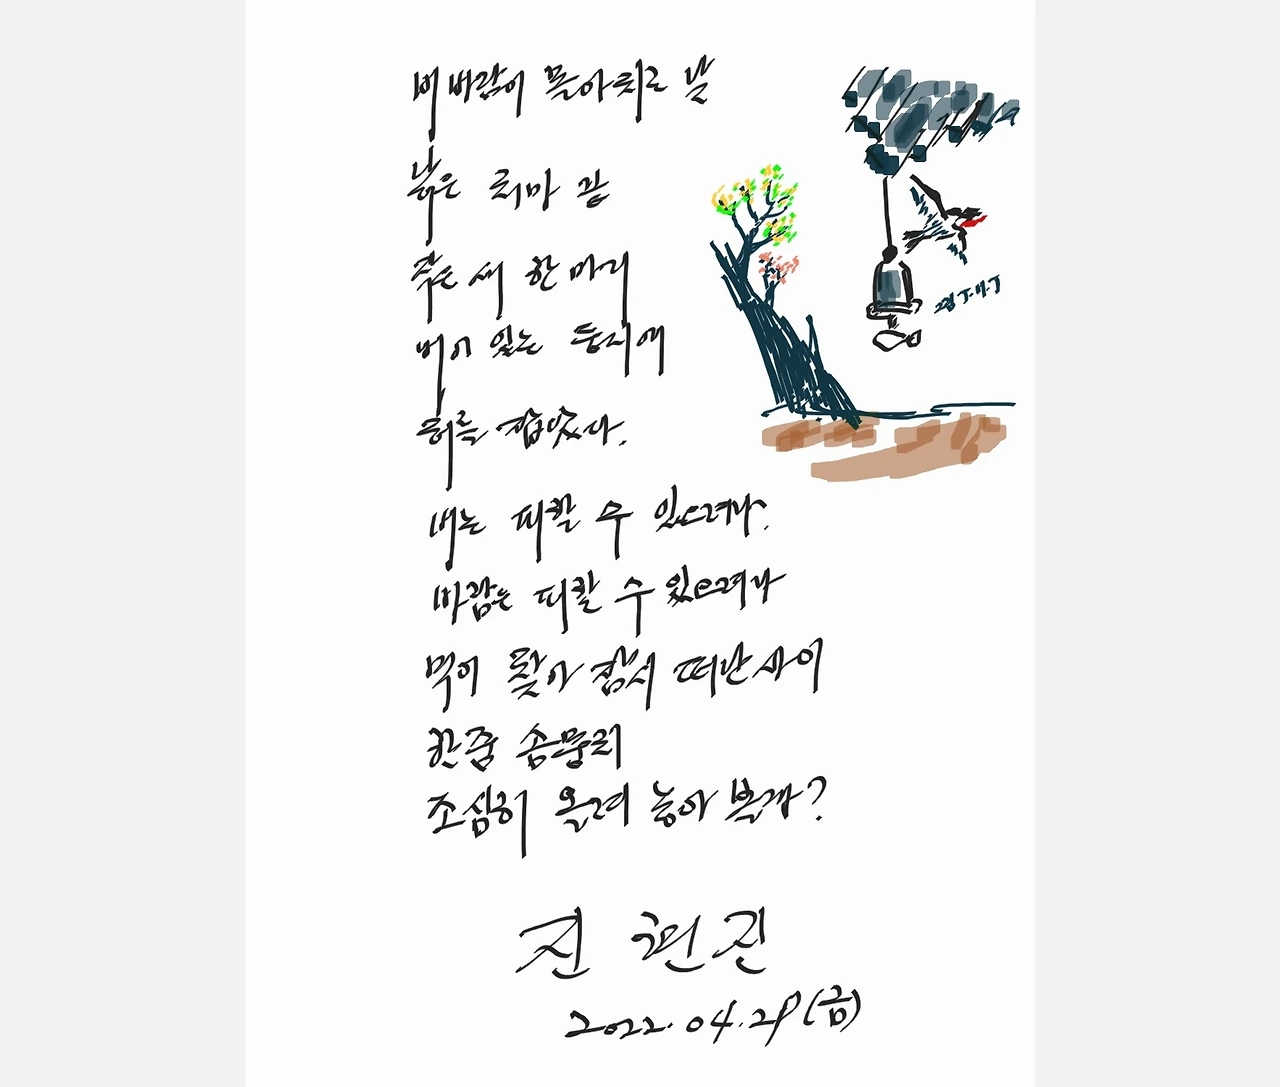 비바람이 몰아치르 날
낡은 처마 끝
작은 새 한 마리
비어 있는 둥지에
터를 잡았다.
비는 피할 수 있으려나.
바람은 피할 수 있으려나
먹이 찾아 잠시 떠난 사이
한줌 솜뭉치
조심히 올려 놓아 볼까?
진
2022.04.29(금)